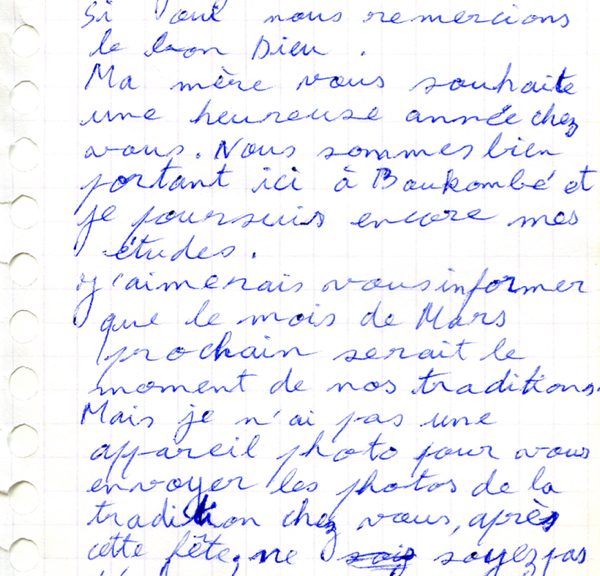 Si oui nous remercions
le bon Dieu.
Ma mère vous souhaite
une heureuse année chez
vous. Nous sommes bien
portant ici à Boukombé et
je poursuis encore mes
études.
J'aimerais vous informer
que le mois de Mars
prochain serait le
moment de nos traditions.
Mais je n'ai pas une
appareil photo pour vous
envoyer les photos de la
tradition chez vous, après
cette fête, ne soyez pas